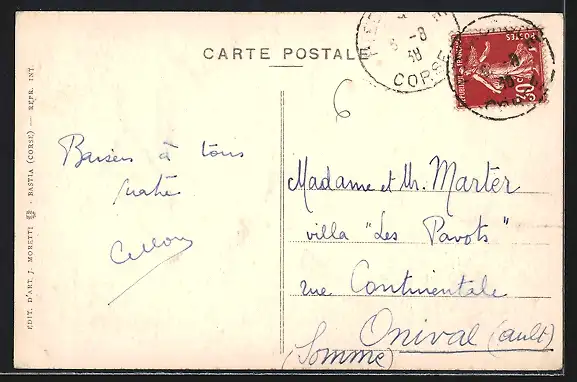 CARTE POSTALE
CORSE
POSTES
6
Baisers à tous
Madame et Mr. Marter
villa "Les Pavots"
rue Continentale
Onival (ault)
(Somme)
ÉDIT. D'ART J. MORETTI - BASTIA (CORSE) — REPR. INT.